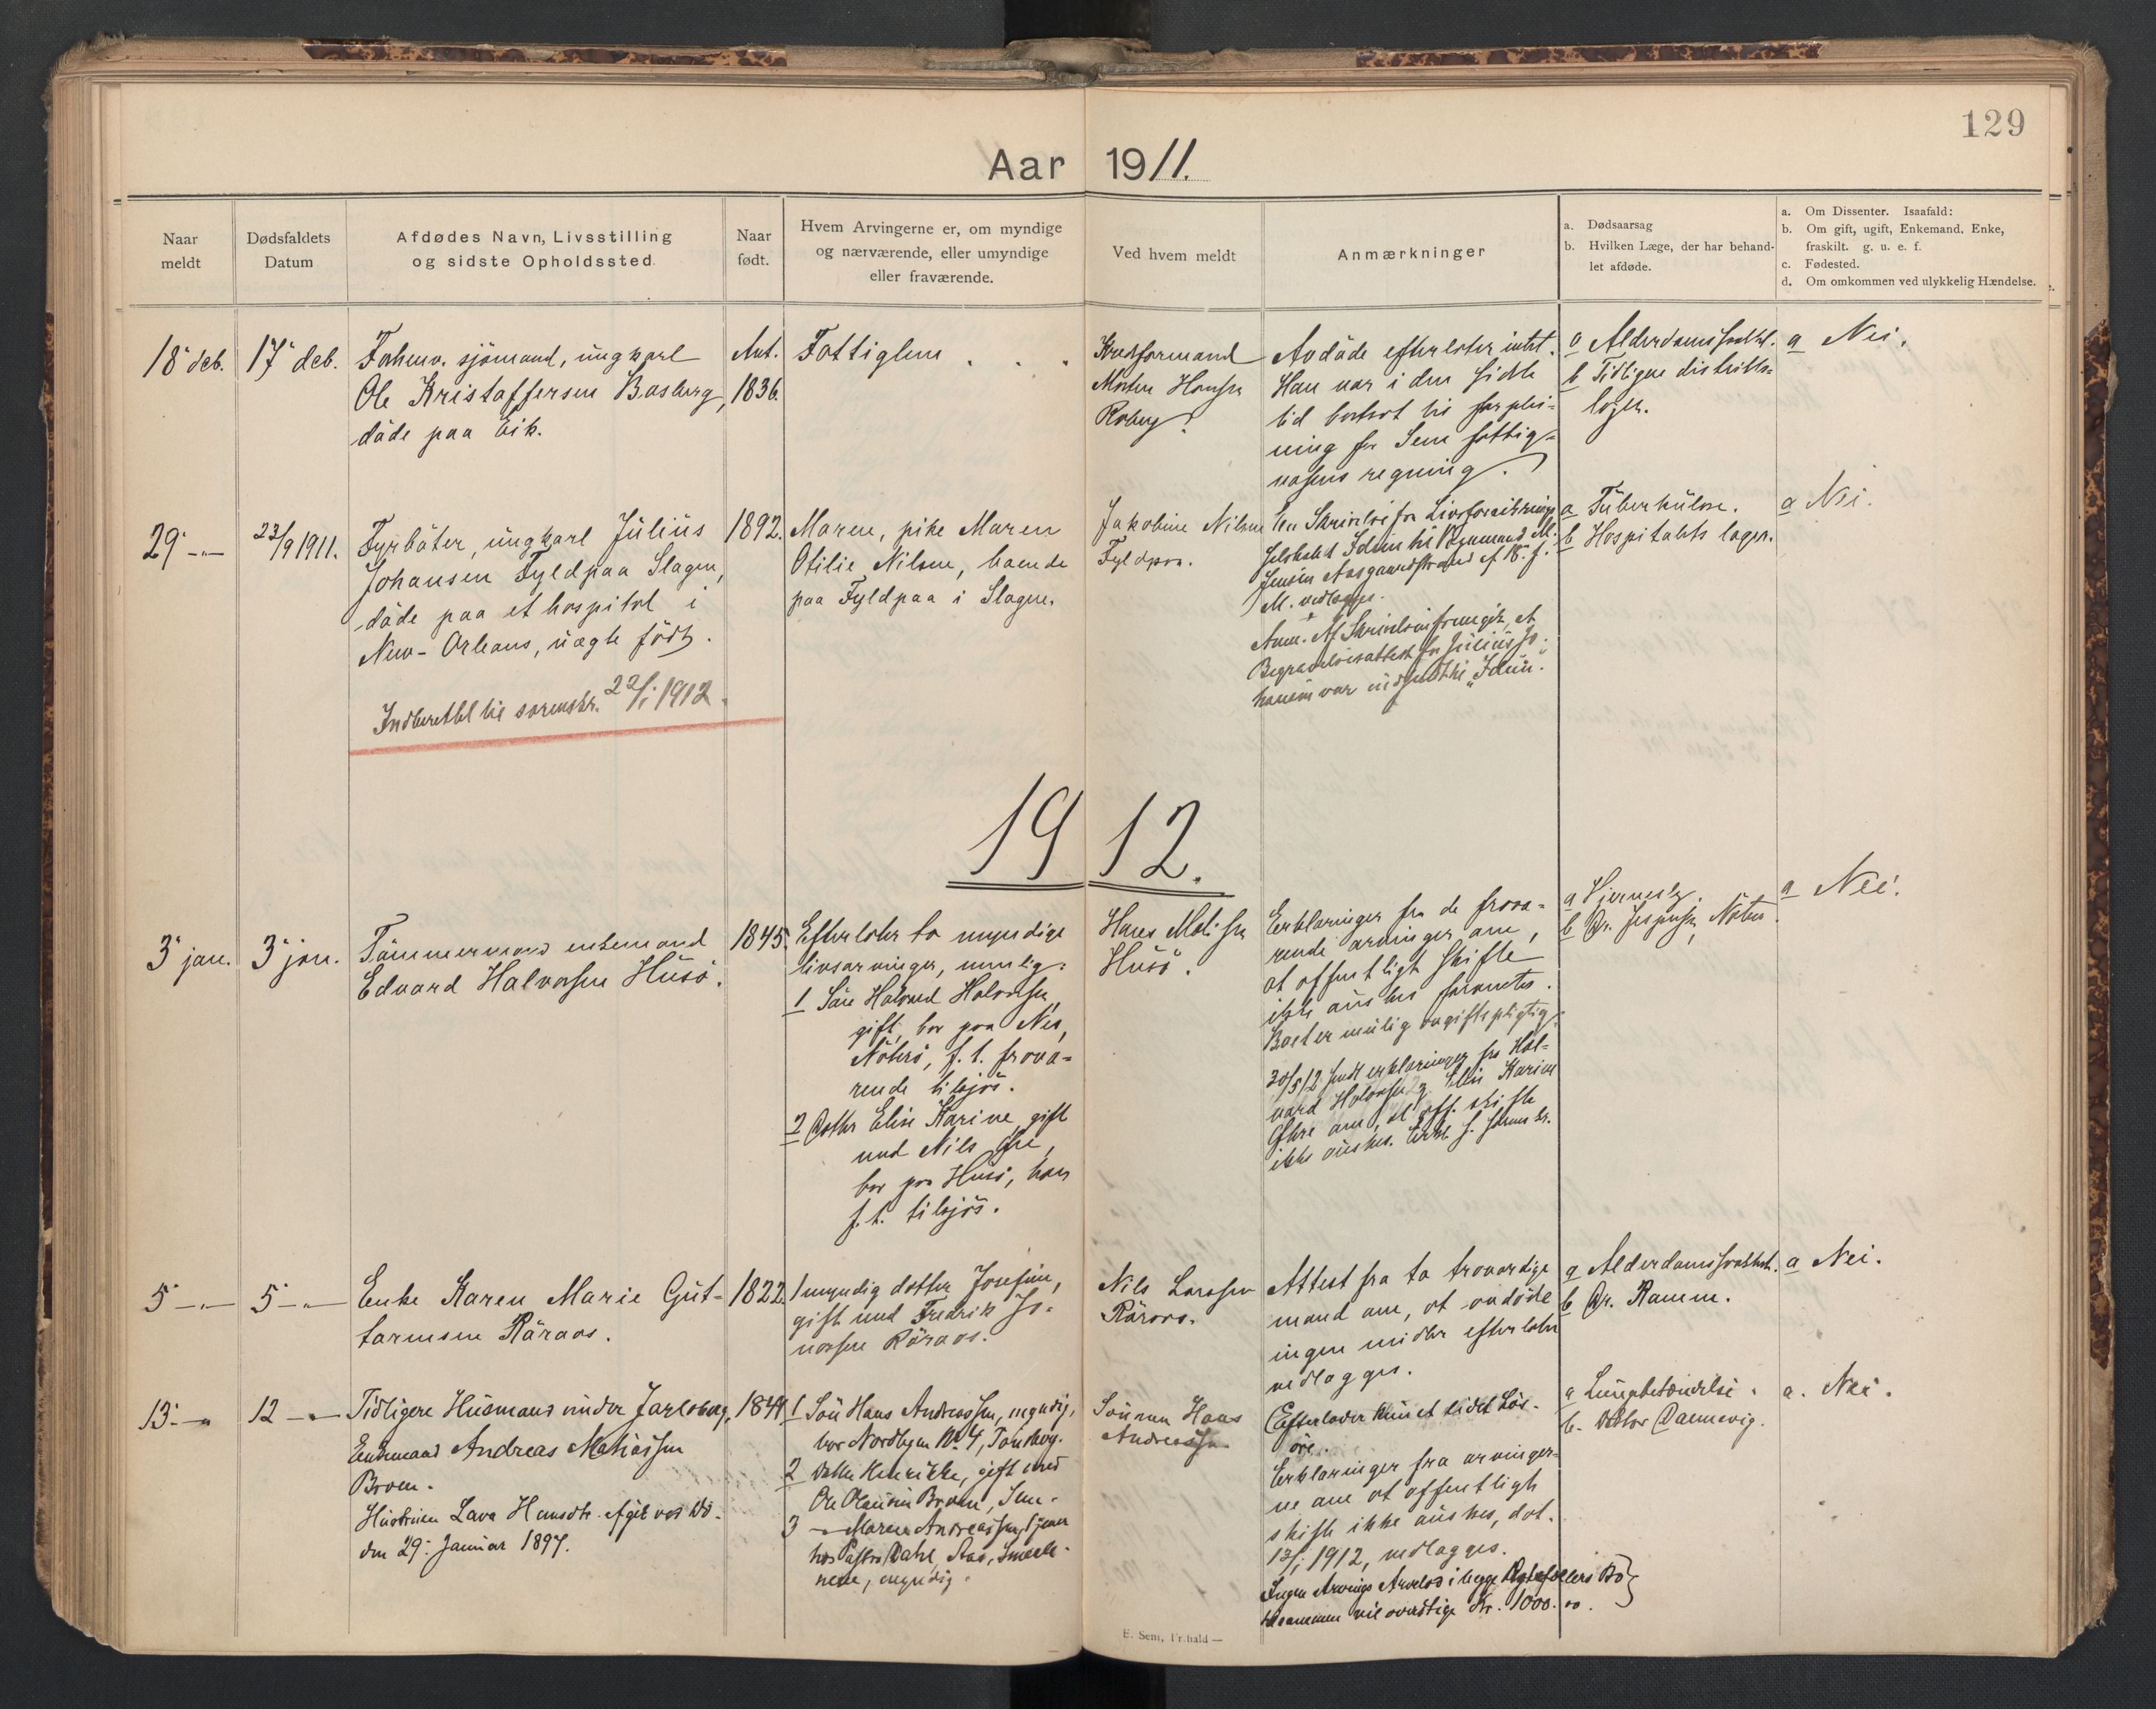 129
Aar 1911.
Naar meldt
Dødsfaldets Datum
Afdødes Navn, Livsstilling
og sidste Opholdssted
Naar født.
Hvem Arvingerne er, om myndige
og nærværende, eller umyndige
eller fraværende.
Ved hvem meldt
Anmærkninger
a. Dødsaarsag
b. Hvilken Læge, der har behand-
let afdøde.
a. Om Dissenter. Isaafald:
b. Om gift, ugift, Enkemand, Enke,
fraskilt. g. u. e. f.
c. Fødested.
d. Om omkommen ved ulykkelig Hændelse.
18 deb.
17 deb.
sjömand, ungkarl
Ole Kristoffersen Basberg,
döde paa Eik.
Ant.
1836.
Fattiglem
Kredsformand
Morten Hansen
Roberg
Avdöde efterlater intet.
Han var i den sidste
tid bortsat til forplei-
ning for Sem fattig-
væsens regning.
a Alderdomssvakhet.
b Tidligere distrikts-
læge.
a Nei.
29 -"-
23/9 1911.
Fyrböter, ungkarl Julius
Johansen Fyldpaa Slagen,
döde paa et hospital i
New-Orleans, uægte födt.
Indberettet til sorenskr. 22/1 1912.
1892.
Moren, pike Maren
Otilie Nilsen, boende
paa Fyldpaa i Slagen.
Jakobine Nilsen
Fyldpaa.
En Skrivelse fra Livsforsikrings
selskabet Idun til
Jensen Aasgaardstrand af 18. f.
M. vedlægges.
Anm. Af Skrivelsen fremgik, at
Begravelsesattest for Julius Jo-
hansen var indsendt til "Idun".
a Tuberkulose.
b Hospitalets læger.
a Nei.
1912.
3 jan.
3 jan.
Tömmermand enkemand
Edvard Halvorsen Husö.
1845.
Efterlater to myndige
livsarvinger, nemlig:
1 Sön Halvard Halvorsen,
gift, bor paa Nes,
Nöterö, f. t. fravæ-
rende tilsjös.
2 Datter Elise Karine, gift
med Nils Öhre,
bor paa Husö, han
f. t. tilsjös.
Hans Matisen
Husö.
Erklæringer fra de fravæ-
rende arvinger om,
at offentligt skifte
ikke önskes forventes.
Boet er mulig avgiftspligtig.
30/5 12 sendt erklæringer fra Hal-
vard Halvorsen og Elise Karine
Öhre om, at off. skifte
ikke önskes. Erkl. s. sorenskr.
a Hjerneslag.
b Dr. Jespersen, Nöterö.
a Nei.
5 -"-
5 -"-
Enke Karen Marie Gut-
tormsen Råraas.
1822.
1 myndig datter Josefine,
gift med Fredrik Jo-
nassen Råraas.
Nils Larssen
Råraas.
Attest fra to troværdige
mænd om, at avdöde
ingen midler efterlater
vedlægges.
a Alderdomssvakhet.
b Dr. Ramm.
a Nei.
13 -"-
12 -"-
Tidligere Husmand under Jarlsberg,
Enkemand Andreas Matiassen
Broen.
Hustruen Lava Hansdtr. afgik ved Dö-
den 29. Januar 1897.
1 Sön Hans Andreassen, myndig,
bor Nordbyen No 4, Tönsberg.
2 Datter Henrikke, gift med
Ole Olaussen Broen, Sem.
3 -"- Maren Andreassen, tjener
hos Pastor Dahl, Aas, Smaale-
nene, myndig.
Sönnen Hans
Andreassen
Efterlader kun et lidet Lös-
öre.
Erklæringer fra arvinger-
ne om at offentligt
skifte ikke önskes, dat.
12/1 1912, vedlægges.
Ingen Arvings Arvelod i begge Ægtefællers Bo
tilsammen vil overstige Kr. 1000.00.
a Lungebetændelse.
b. Doktor Dannevig.
a. Nei.
E. Sem, Fr.hald —